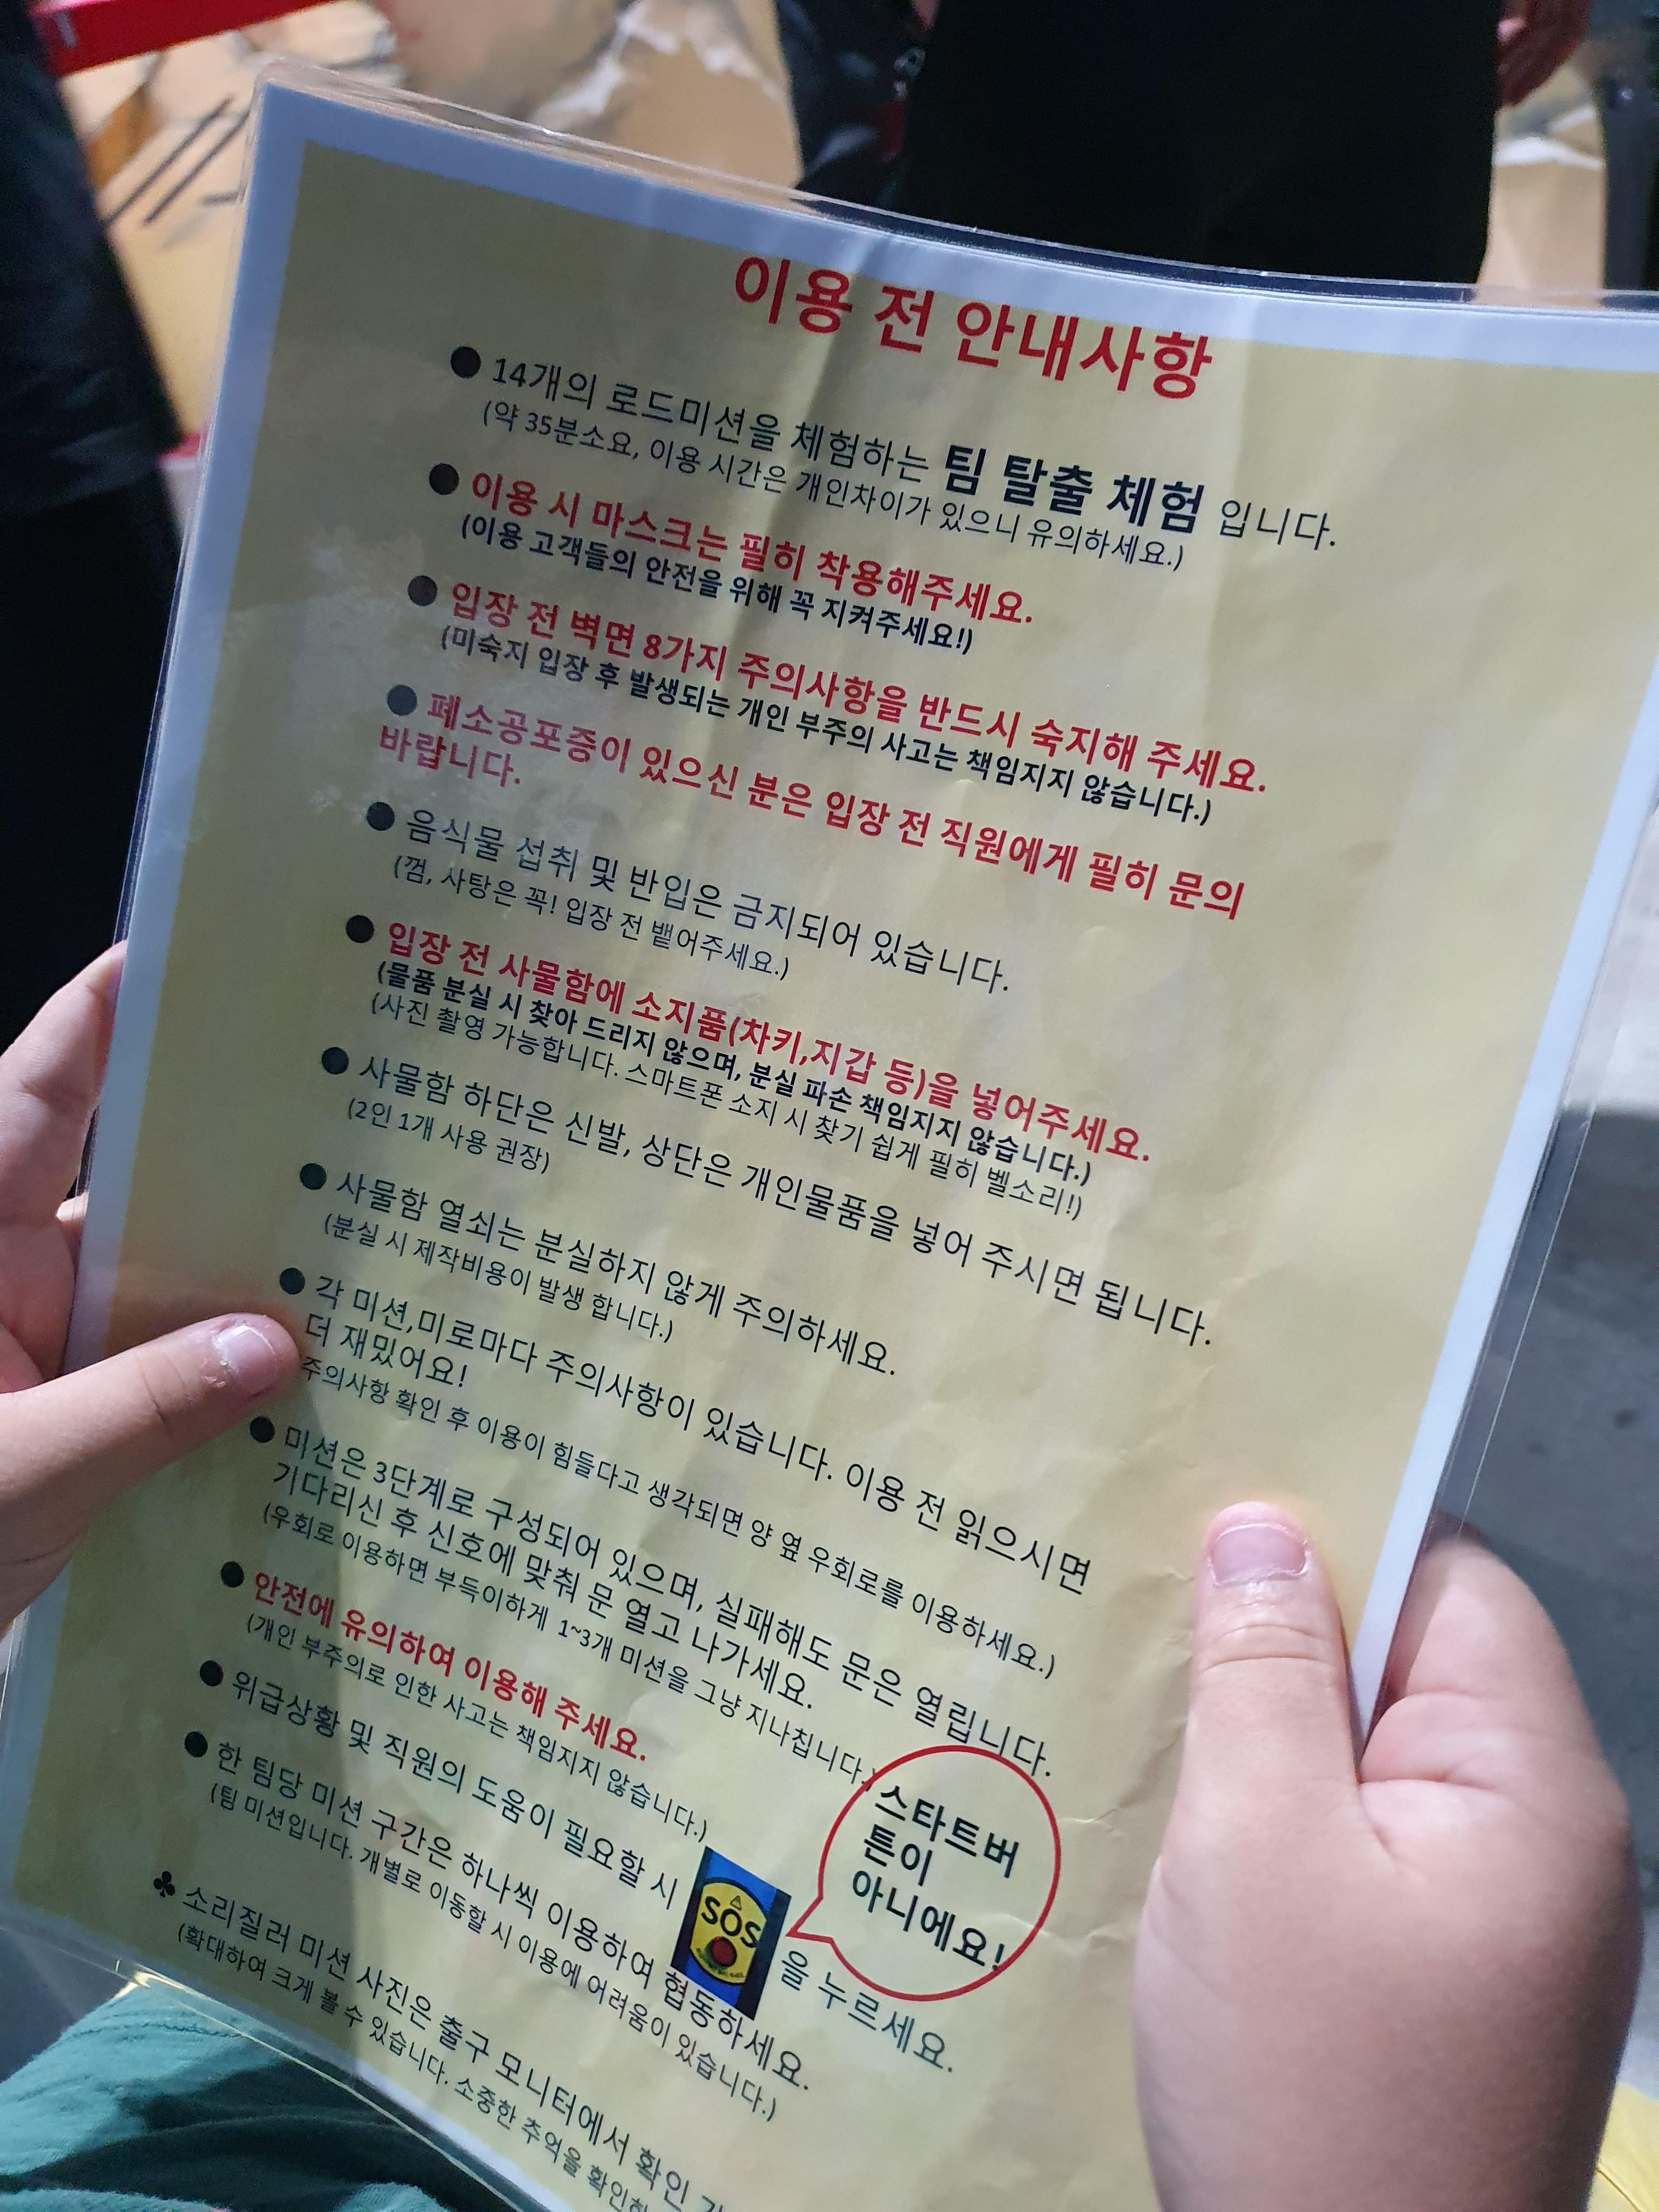 이용 전 안내사항
● 14개의 로드미션을 체험하는 팀 탈출 체험 입니다.
(약 35분소요, 이용 시간은 개인차이가 있으니 유의하세요.)
● 이용 시 마스크는 필히 착용해주세요.
(이용 고객들의 안전을 위해 꼭 지켜주세요!)
● 입장 전 벽면 8가지 주의사항을 반드시 숙지해 주세요.
(미숙지 입장 후 발생되는 개인 부주의 사고는 책임지지 않습니다.)
● 폐소공포증이 있으신 분은 입장 전 직원에게 필히 문의
바랍니다.
● 음식물 섭취 및 반입은 금지되어 있습니다.
(껌, 사탕은 꼭! 입장 전 뱉어주세요.)
● 입장 전 사물함에 소지품(차키,지갑 등)을 넣어주세요.
(물품 분실 시 찾아 드리지 않으며, 분실 파손 책임지지 않습니다.)
(사진 촬영 가능합니다. 스마트폰 소지 시 찾기 쉽게 필히 벨소리!)
● 사물함 하단은 신발, 상단은 개인물품을 넣어 주시면 됩니다.
(2인 1개 사용 권장)
● 사물함 열쇠는 분실하지 않게 주의하세요.
(분실 시 제작비용이 발생 합니다.)
● 각 미션,미로마다 주의사항이 있습니다. 이용 전 읽으시면
더 재밌어요!
주의사항 확인 후 이용이 힘들다고 생각되면 양 옆 우회로를 이용하세요.)
● 미션은 3단계로 구성되어 있으며, 실패해도 문은 열립니다.
기다리신 후 신호에 맞춰 문 열고 나가세요.
(우회로 이용하면 부득이하게 1~3개 미션을 그냥 지나칩니다.)
● 안전에 유의하여 이용해 주세요.
(개인 부주의로 인한 사고는 책임지지 않습니다.)
스타트버
튼이
아니에요!
● 위급상황 및 직원의 도움이 필요할 시 SOS 을 누르세요.
● 한 팀당 미션 구간은 하나씩 이용하여 협동하세요.
(팀 미션입니다. 개별로 이동할 시 이용에 어려움이 있습니다.)
♣ 소리질러 미션 사진은 출구 모니터에서 확인
(확대하여 크게 볼 수 있습니다. 소중한 추억을